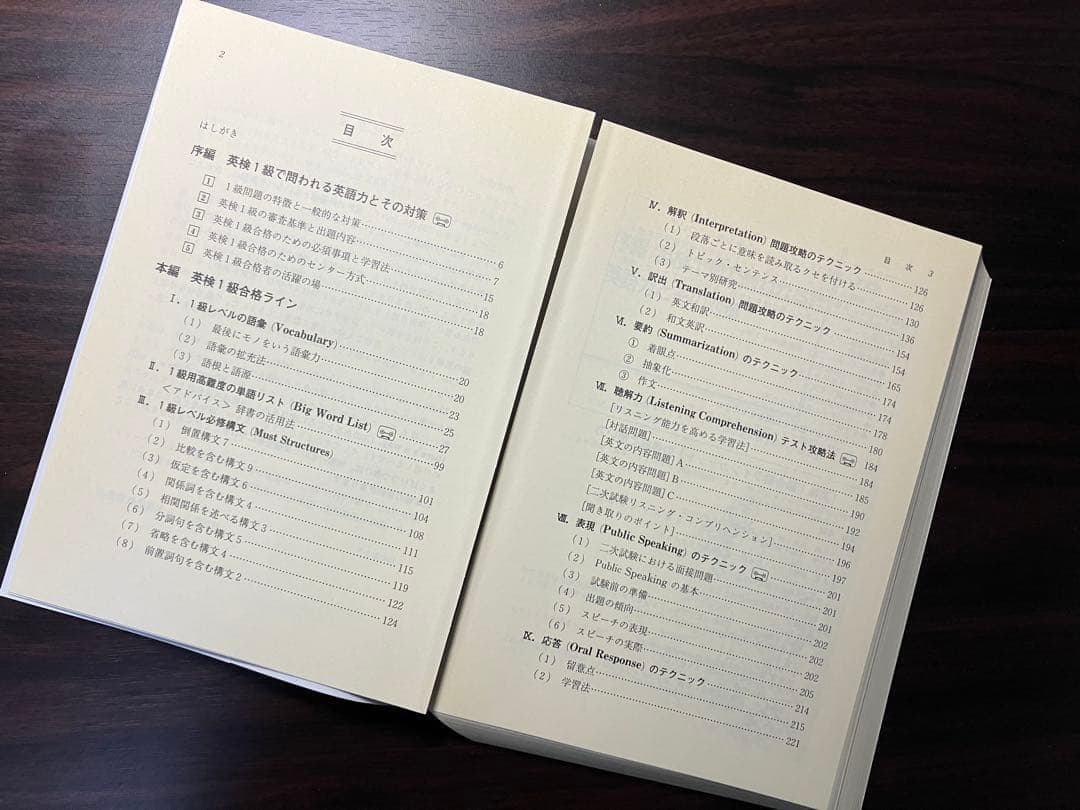 2
目 次
はしがき
序編 英検1級で問われる英語力とその対策
1 1級問題の特徴と一般的な対策……6
2 英検1級の審査基準と出題内容……7
3 英検1級合格のための必須事項と学習法……15
4 英検1級合格のためのセンター方式……18
5 英検1級合格者の活躍の場……18
本編 英検1級合格ライン
Ⅰ. 1級レベルの語彙 (Vocabulary)……20
(1) 最後にモノをいう語彙力……20
(2) 語彙の拡充法……23
(3) 語根と語源……25
Ⅱ. 1級用高難度の単語リスト (Big Word List)……27
<アドバイス> 辞書の活用法……99
Ⅲ. 1級レベル必修構文 (Must Structures)
(1) 倒置構文7……101
(2) 比較を含む構文9……104
(3) 仮定を含む構文6……108
(4) 関係詞を含む構文4……111
(5) 相関関係を述べる構文3……115
(6) 分詞句を含む構文5……119
(7) 省略を含む構文4……122
(8) 前置詞句を含む構文2……124
目 次 3
Ⅳ. 解釈 (Interpretation) 問題攻略のテクニック……126
(1) 段落ごとに意味を読み取るクセを付ける……126
(2) トピック・センテンス……130
(3) テーマ別研究……136
Ⅴ. 訳出 (Translation) 問題攻略のテクニック……154
(1) 英文和訳……154
(2) 和文英訳……165
Ⅵ. 要約 (Summarization) のテクニック……174
① 着眼点……174
② 抽象化……178
③ 作文……180
Ⅶ. 聴解力 (Listening Comprehension) テスト攻略法……184
[リスニング能力を高める学習法]……184
[対話問題]……185
[英文の内容問題] A……190
[英文の内容問題] B……192
[英文の内容問題] C……194
[二次試験リスニング・コンプリヘンション]……196
[聞き取りのポイント]……197
Ⅷ. 表現 (Public Speaking) のテクニック……201
(1) 二次試験における面接問題……201
(2) Public Speaking の基本……201
(3) 試験前の準備……202
(4) 出題の傾向……202
(5) スピーチの表現……202
(6) スピーチの実際……205
Ⅸ. 応答 (Oral Response) のテクニック……214
(1) 留意点……215
(2) 学習法……221